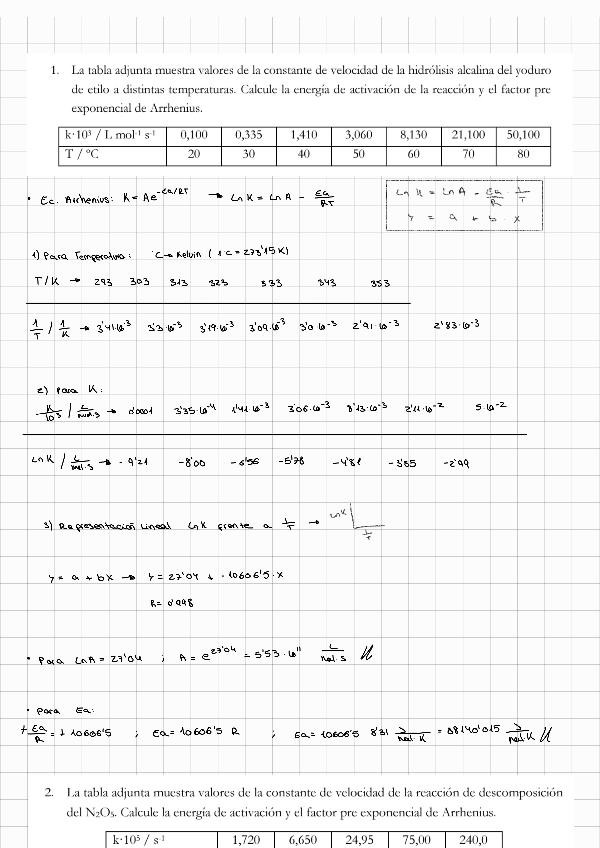 1. La tabla adjunta muestra valores de la constante de velocidad de la hidrólisis alcalina del yoduro
de etilo a distintas temperaturas. Calcule la energía de activación de la reacción y el factor pre
exponencial de Arrhenius.
k·10³ / L mol⁻¹ s⁻¹ 0,100 0,335 1,410 3,060 8,130 21,100 50,100
T / ºC 20 30 40 50 60 70 80
• Ec. Arrhenius: K = Ae^-Ea/RT → Ln K = Ln A - Ea/RT
Ln K = Ln A - Ea/R · 1/T
Y = a + b · x
1) Para Temperatura: °C → Kelvin (1°C = 273'15K)
T/K → 293 303 313 323 333 343 353
1/T / 1/K → 3'41·10⁻³ 3'3·10⁻³ 3'19·10⁻³ 3'09·10⁻³ 3'0·10⁻³ 2'91·10⁻³ 2'83·10⁻³
2) Para K:
K/10³ / L/mol·s → 0'0001 3'35·10⁻⁴ 1'41·10⁻³ 3'06·10⁻³ 8'13·10⁻³ 2'11·10⁻² 5·10⁻²
Ln K / L/mol·s → -9'21 -8'00 -6'56 -5'78 -4'81 -3'85 -2'99
3) Representación Lineal Ln K frente a 1/T → Ln K
1/T
Y = a + bx → Y = 27'04 + -10606'5 · x
R = 0'998
• Para Ln A = 27'04 ; A = e^27'04 = 5'53·10¹¹ L/mol·s
• Para Ea:
+Ea/R = +10606'5 ; Ea = 10606'5 R ; Ea = 10606'5 8'31 J/mol·K = 88140'015 J/mol·K
2. La tabla adjunta muestra valores de la constante de velocidad de la reacción de descomposición
del N₂O₅. Calcule la energía de activación y el factor pre exponencial de Arrhenius.
k·10⁵ / s⁻¹ 1,720 6,650 24,95 75,00 240,0